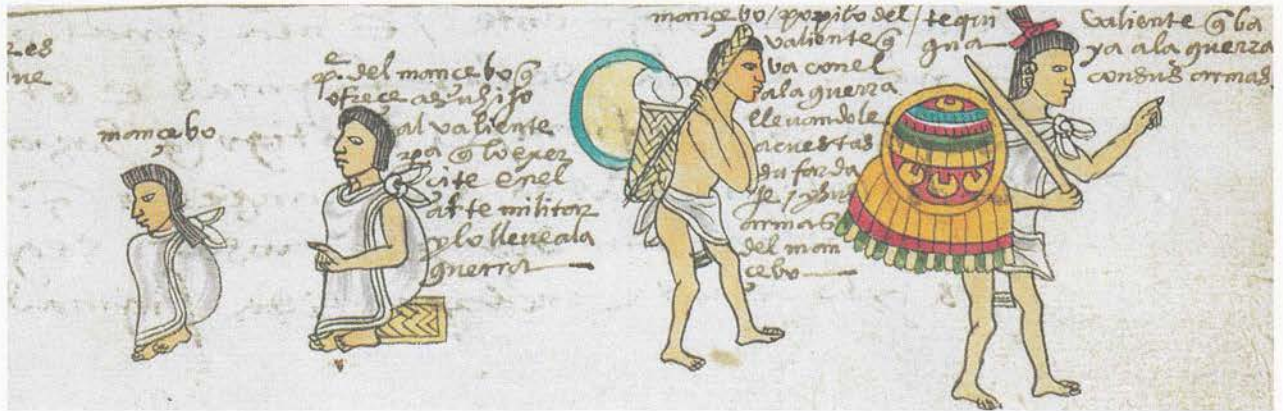 res
mançebo
pe. del mancebo q̃
ofrece a su hijo
al valiente
pa q̃ lo exer
cite en el
arte militar
y lo lleve a la
guerra
mançebo / popilo del /
valiente q̃
va con el
a la guerra
llevandole
acuestas
su farda
je / y sus
armas
del man
cebo
tequi
gua
valiente q̃ ba
ya a la guerra
con sus armas